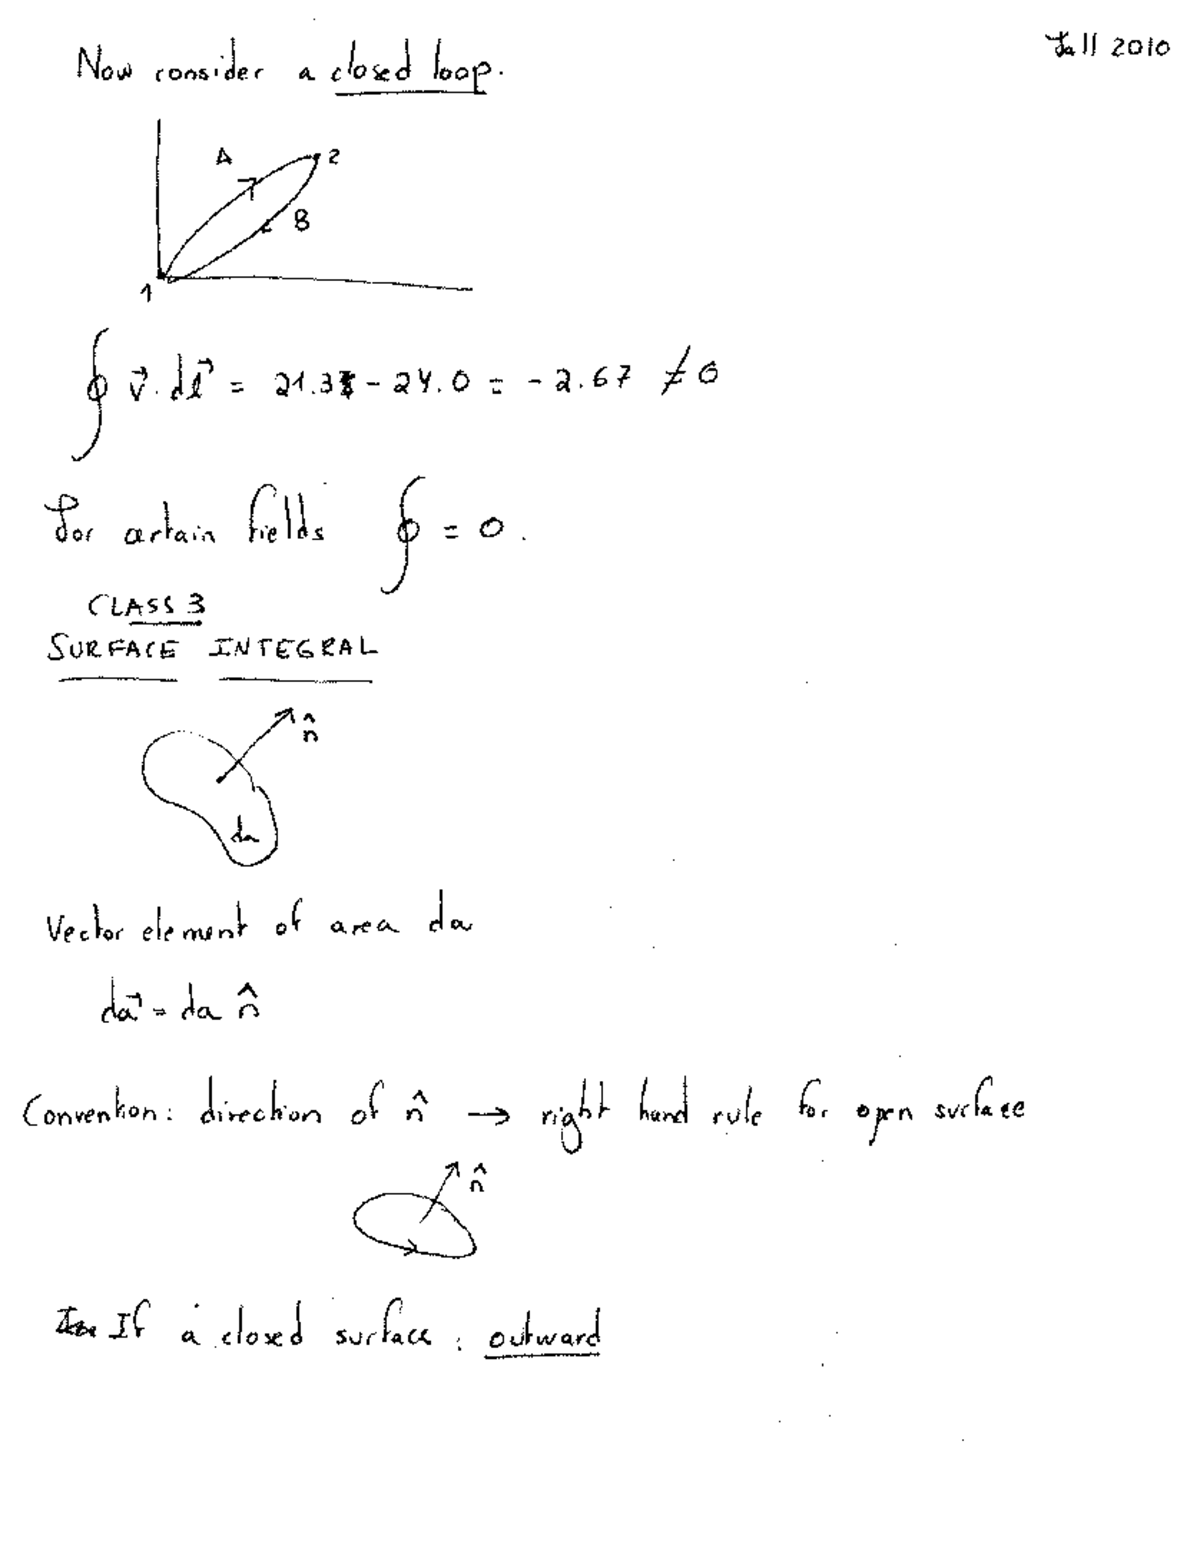 Fall 2010
Now consider a closed loop.
A
2
B
1
∮ v⃗. dl⃗ = 21.3 - 24.0 = - 2.67 ≠ 0
For certain fields ∮ = 0.
CLASS 3
SURFACE INTEGRAL
n̂
da
Vector element of area da
da⃗ = da n̂
Convention: direction of n̂ → right hand rule for open surface
n̂
If a closed surface: outward